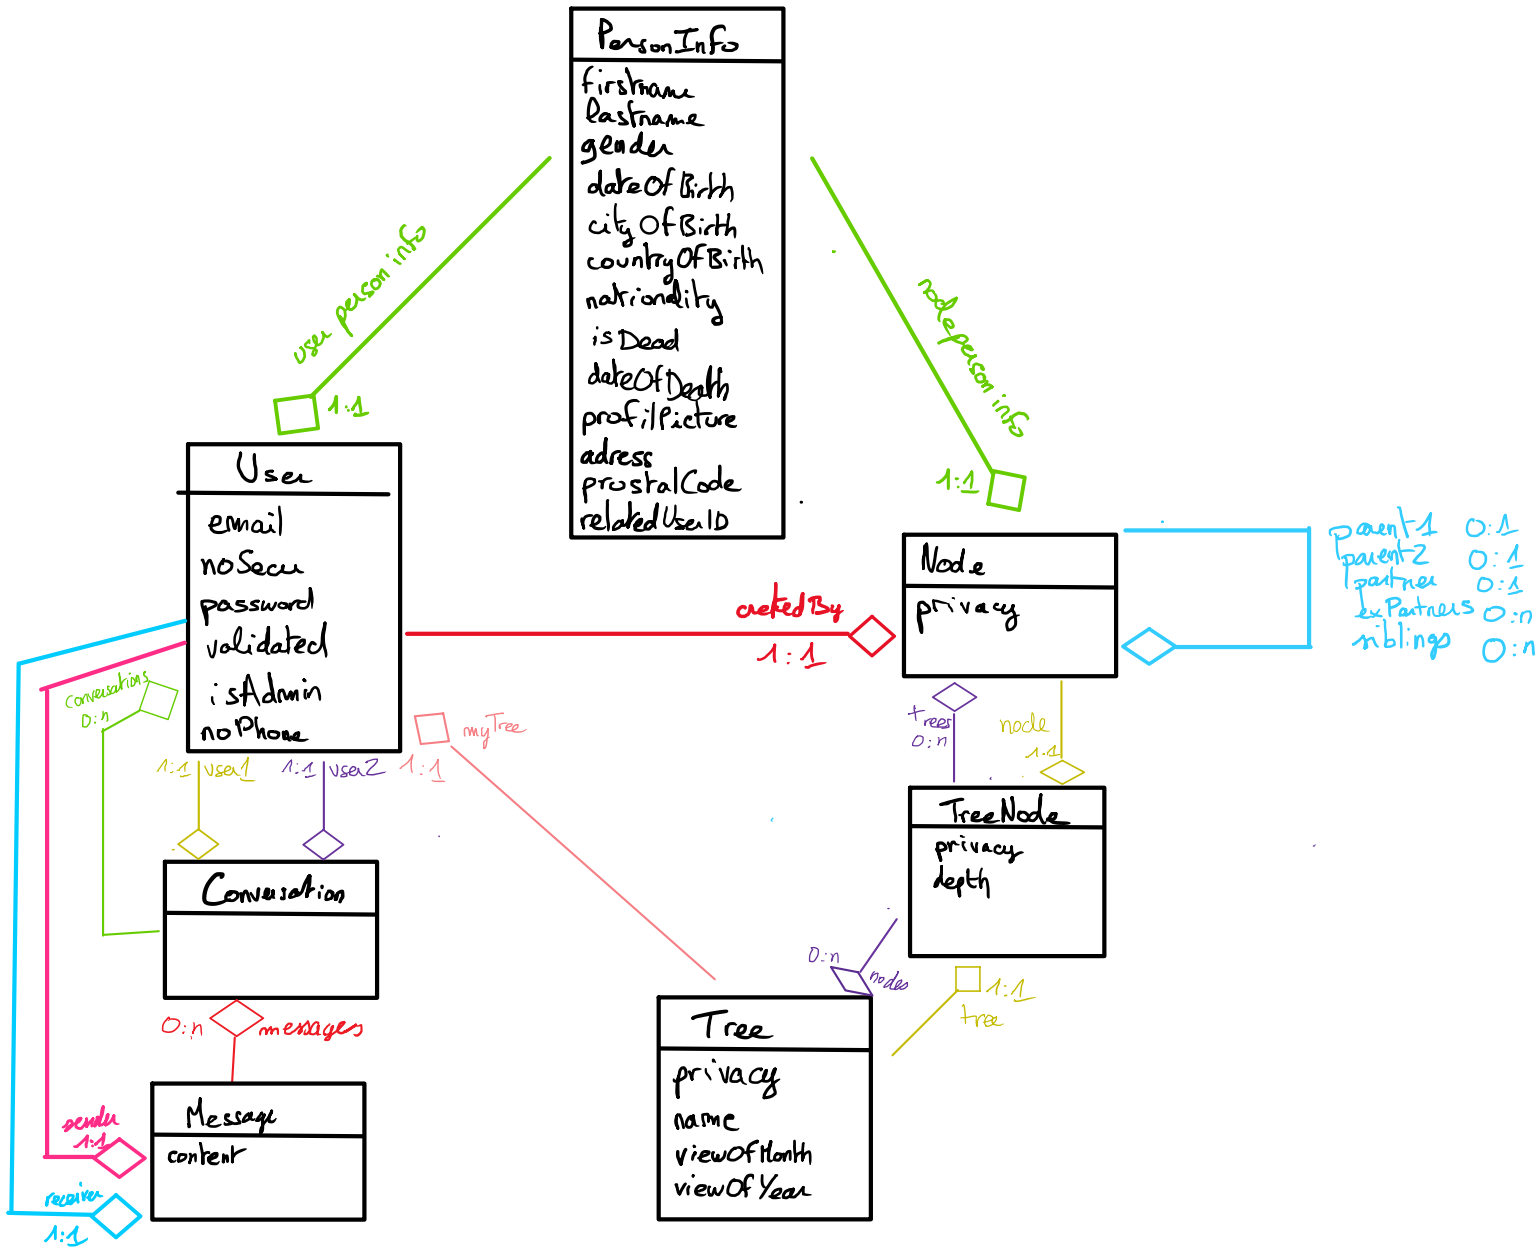 PersonInfo
firstname
lastname
gender
dateOfBirth
cityOfBirth
countryOfBirth
nationality
isDead
dateOfDeath
profilPicture
adress
prostalCode
relatedUserID
user person info
1:1
node person info
1:1
User
email
noSecu
password
validated
isAdmin
noPhone
cretedBy
1:1
Node
privacy
parent1 0:1
parent2 0:1
partner 0:1
exPartners 0:n
siblings 0:n
conversations
0:n
1:1 user1
1:1 user2
myTree
1:1
trees
0:n
node
1:1
TreeNode
privacy
depth
Conversation
0:n
nodes
1:1
tree
0:n messages
Tree
privacy
name
viewOfMonth
viewOfYear
Message
content
sender
1:1
receiver
1:1